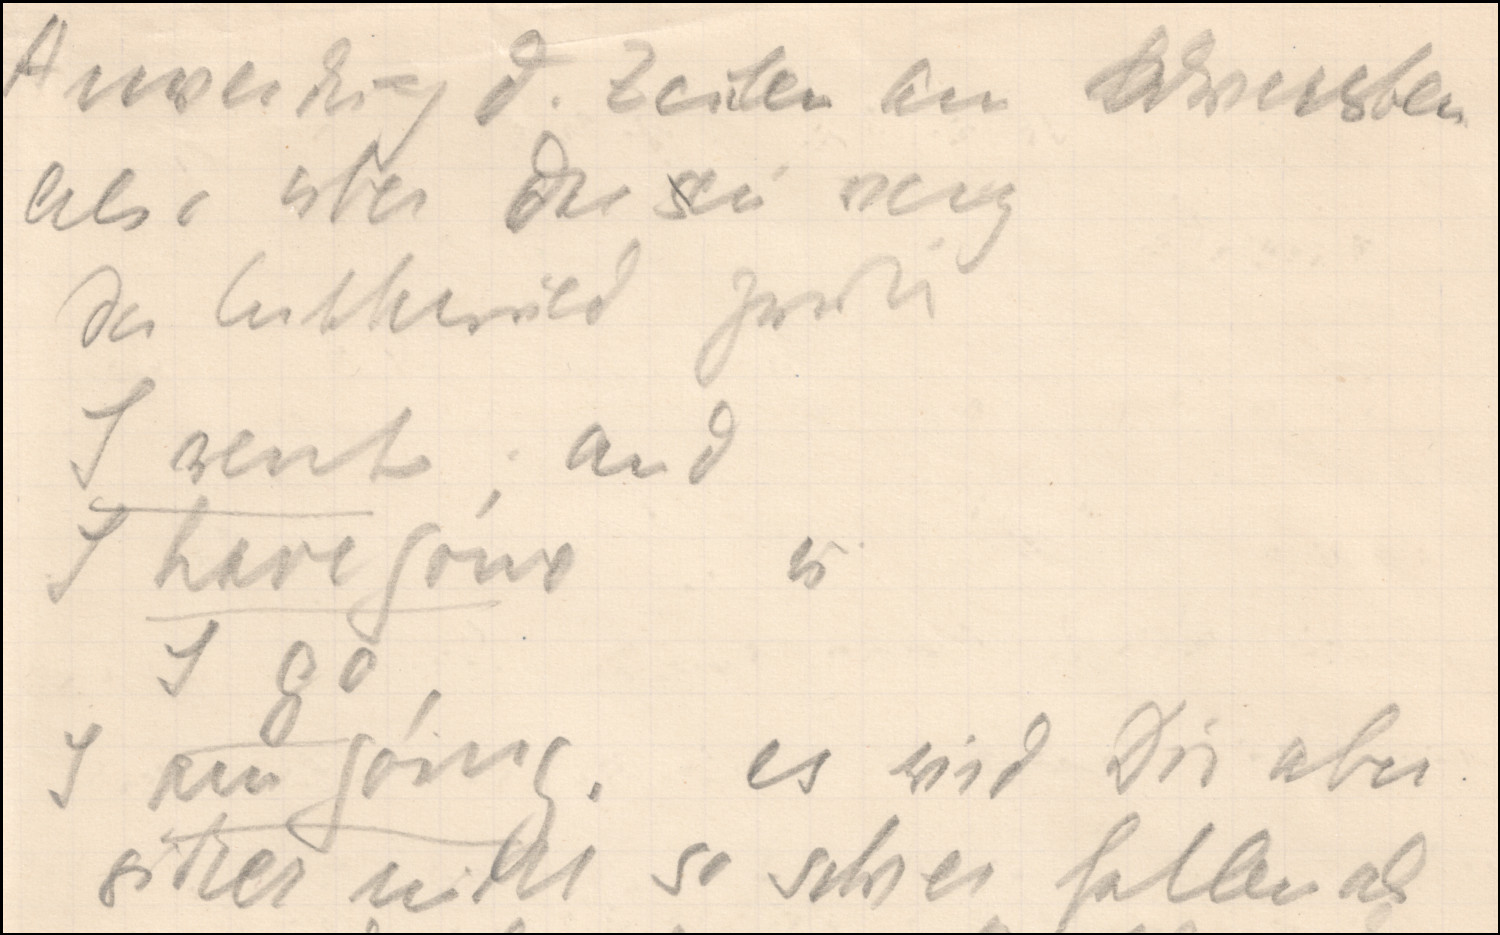 Anwendung d. Zeiten am schwersten
also aber die
der Unterschied zwischen
I went, and
I have gone
I go,
I am going. es wird Dir aber
sicher nicht so schwer fallen als